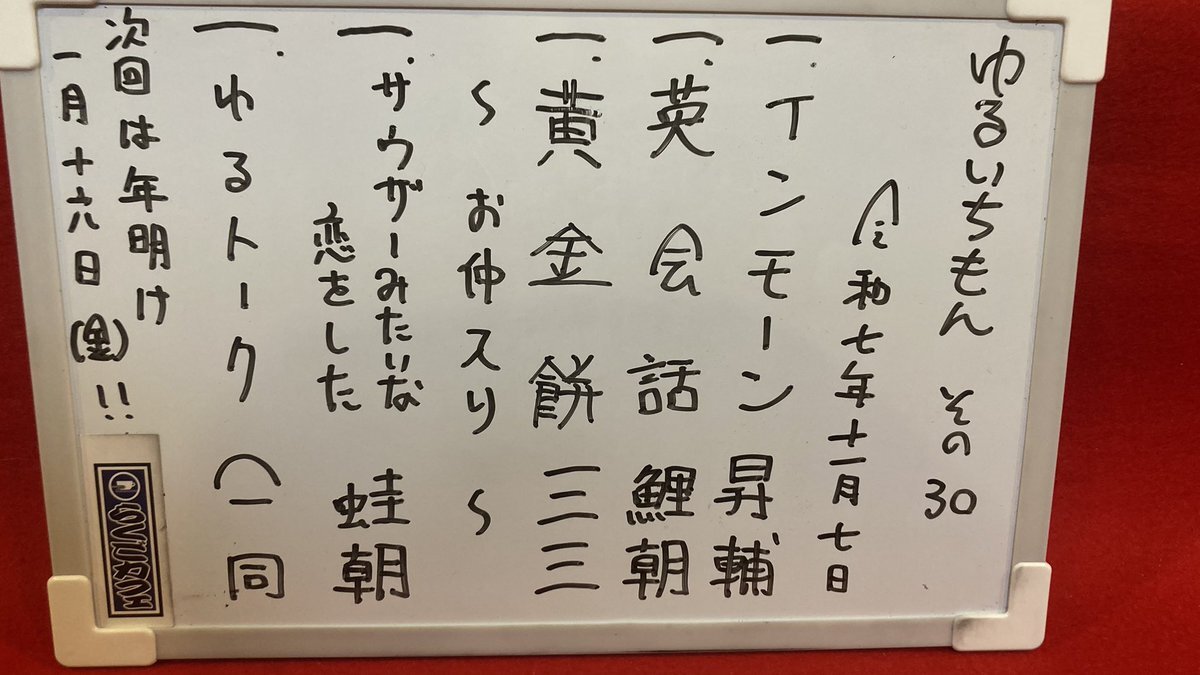 ゆるいちもん その30
令和七年十一月七日
一.インモーン 昇輔
一.英会話 鯉朝
一.黄金餅 三三
〜お仲入り〜
一.サウザーみたいな
恋をした 蛙朝
一.ゆるトーク (一同
次回は年明け
一月十六日(金)!!